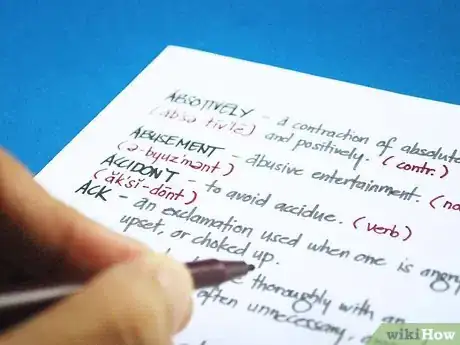 ABSOTIVELY - a contraction of absolute
(absə tiv'lē) and positively. (contr.)
ABUSEMENT - abusive entertainment. (no
(ə-byuz'mənt)
ACCIDONT - to avoid accidue. (verb)
(ăksĭ-dōnt)
ACK - an exclamation used when one is angry
upset, or choked up.
thoroughly with an
often unnecessary,
wikiHow